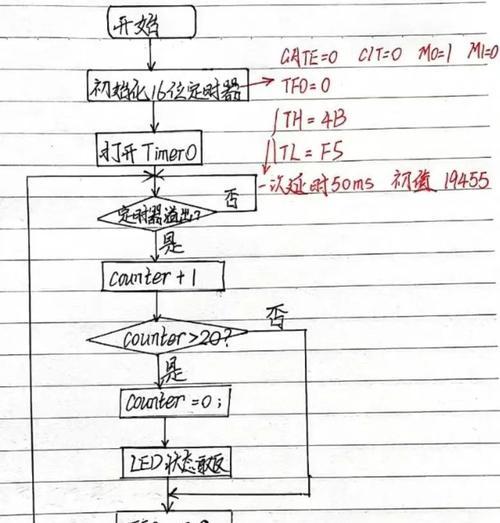 开始
GATE=0 C/T=0 M0=1 M1=0
初始化16位定时器
TF0=0
TH=4B
打开Timer0
TL=F5
一次延时50ms 初值 19455
否
定时器溢出?
是
counter+1
否
counter>20?
是
counter=0;
LED状态取反